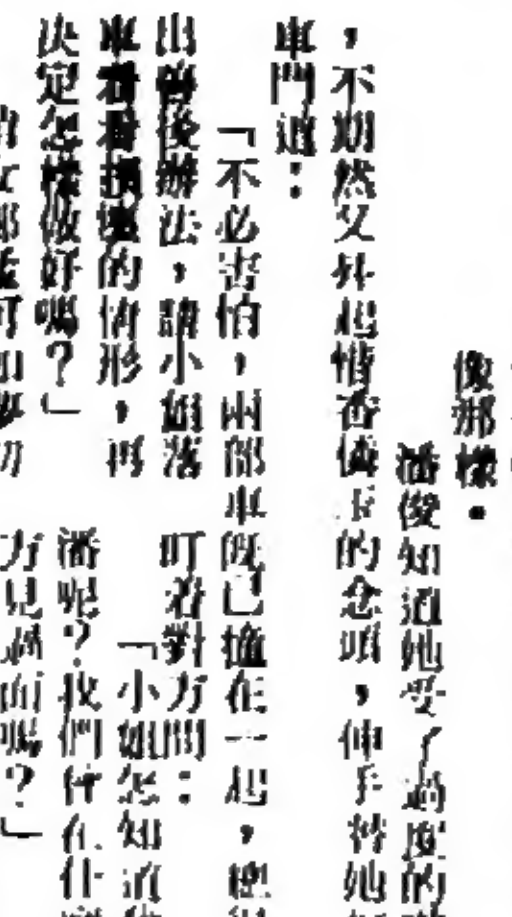 像那樣。
潘俊知道她受了過度的
，不期然又升起惜香憐玉的念頭，伸手替她
車門道：
「不必害怕，兩部車既已撞在一起，總
出善後辦法，請小姐落
車看看損壞的情形，再
决定怎樣做好嗎？」
叮着對方問：
「小姐怎知道
潘呢？我們曾在什
方見過面嗎？」